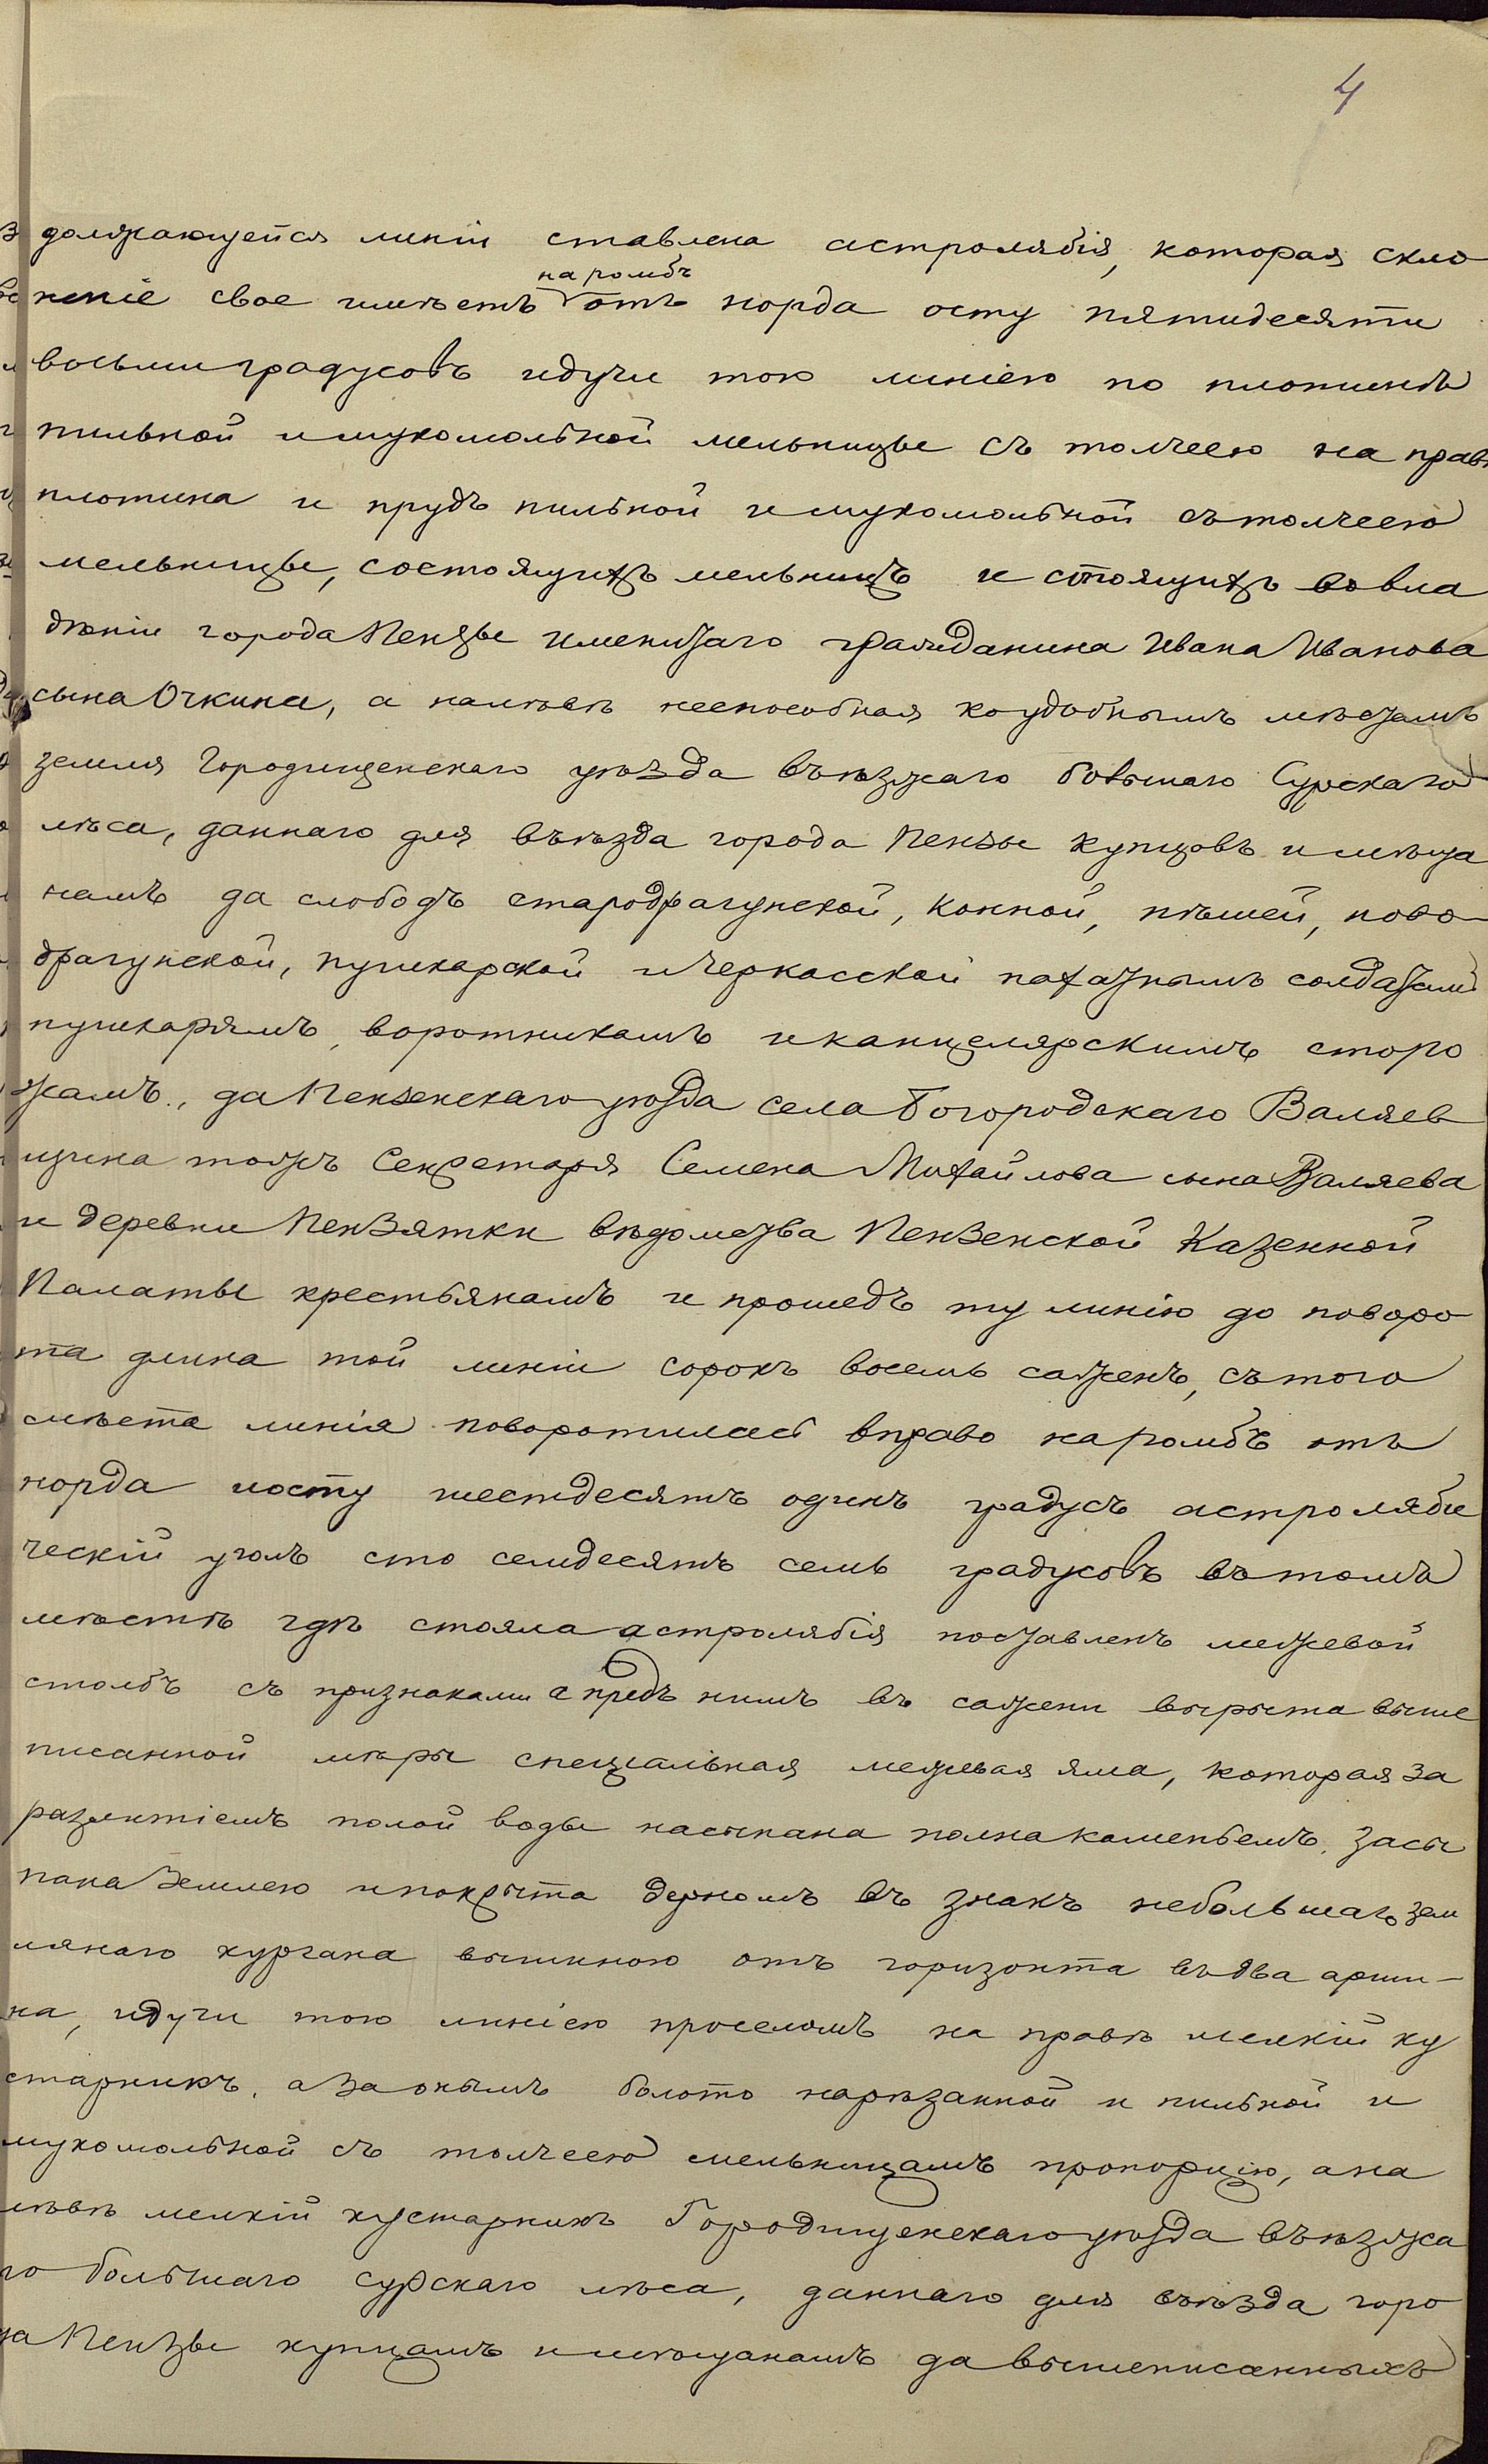 4
должающейся линіи ставлена астролябія, которая скло
на ромбъ
неніе свое имѣетъ отъ норда осту пятидесяти
восьми градусовъ идучи тою линіею по плотинѣ
пильной и мукомольной мельницы съ толчеею на правѣ
плотина и прудъ пильной и мукомольной съ толчеею
мельницы, состоящихъ мельницъ и стоящихъ во вла
дѣніи города Пензы именитаго гражданина Ивана Иванова
сына Очкина, а налѣвѣ неспособная ко удобнымъ мѣстамъ
земля Городищенскаго уѣзда въѣзжаго большаго Сурскаго
лѣса, даннаго для въѣзда города Пензы купцовъ и мѣща
намъ да слободъ стародрагунской, конной, пѣшей, ново-
драгунской, пушкарской и Черкасской пахатнымъ солдатамъ
пушкарямъ, воротникамъ и канцелярскимъ сторо
жамъ, да Пензенскаго уѣзда села Богородскаго Валяев
щина тожъ Секретаря Семена Михайлова сына Валяева
и деревни Пензятки вѣдомства Пензенской Казенной
Палаты крестьянамъ и прошедъ ту линію до поворо
та длина той линіи сорокъ восемь саженъ, съ того
мѣста линія поворотилась вправо на ромбъ отъ
норда к осту шестдесятъ одинъ градусъ астроляби
ческій уголъ сто семдесятъ семь градусовъ въ томъ
мѣстѣ гдѣ стояла астролябія поставленъ межевой
столбъ съ признаками а предъ нимъ въ сажени вырыта выше
писанной мѣры спеціальная межевая яма, которая за
разлитіемъ полой воды насыпана полна каменьемъ, засы
пана землею и покрыта дерномъ въ знакъ небольшаго зем
лянаго кургана вышиною отъ горизонта въ два арши-
на, идучи тою линіею проселомъ на правѣ мелкій ку
старникъ, а за онымъ болото нарѣзанной и пильной и
мукомольной съ толчеею мельницамъ пропорцію, а на
лѣвѣ мелкій кустарникъ Городищенскаго уѣзда въѣзжа
го большаго сурскаго лѣса, даннаго для въѣзда горо
да Пензы купцамъ и мѣщанамъ да вышеписанныхъ